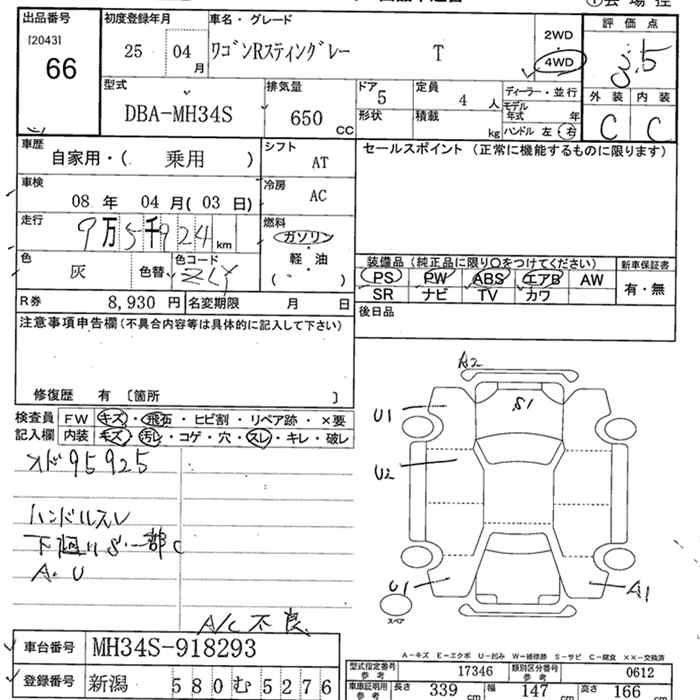 出品番号 [2043] 66
初度登録年月 25 04月
車名・グレード ワゴンRスティングレー T
2WD
4WD
評価点 3.5
外装 C 内装 C
型式 DBA-MH34S
排気量 650 CC
ドア 5 形状
定員 4人
積載 kg
ディーラー・並行
モデル年式 年
ハンドル 左・右
車歴 自家用・( 乗用 )
シフト AT
セールスポイント (正常に機能するものに限ります)
車検 08年 04月(03日)
冷房 AC
走行 9万5千924 km
燃料 ガソリン・軽油
( )
色 灰 色替
色コード ZLJ
装備品 (純正品に限り○をつけてください)
PS PW ABS エアB AW
SR ナビ TV カワ
新車保証書 有・無
R券 8,930円 名変期限 月 日
後日品
注意事項申告欄(不具合内容等は具体的に記入して下さい)
修復歴 有 [箇所 ]
検査員記入欄
FW キズ・飛石・ヒビ割・リペア跡・×要
内装 キズ・汚レ・コゲ・穴・スレ・キレ・破レ
メド95925
ハンドルスレ
下廻りS・一部C
A・U
A/C不良
A2
S1
U1
U2
U1
A1
スペア
A-キズ E-エクボ U-凹み W-補修跡 S-サビ C-腐食 ××-交換済
車台番号 MH34S-918293
登録番号 新潟 580む5276
型式指定番号 参考 17346 類別区分番号 参考 0612
車庫証明用 参考 長さ 339 cm 幅 147 cm 高さ 166 cm